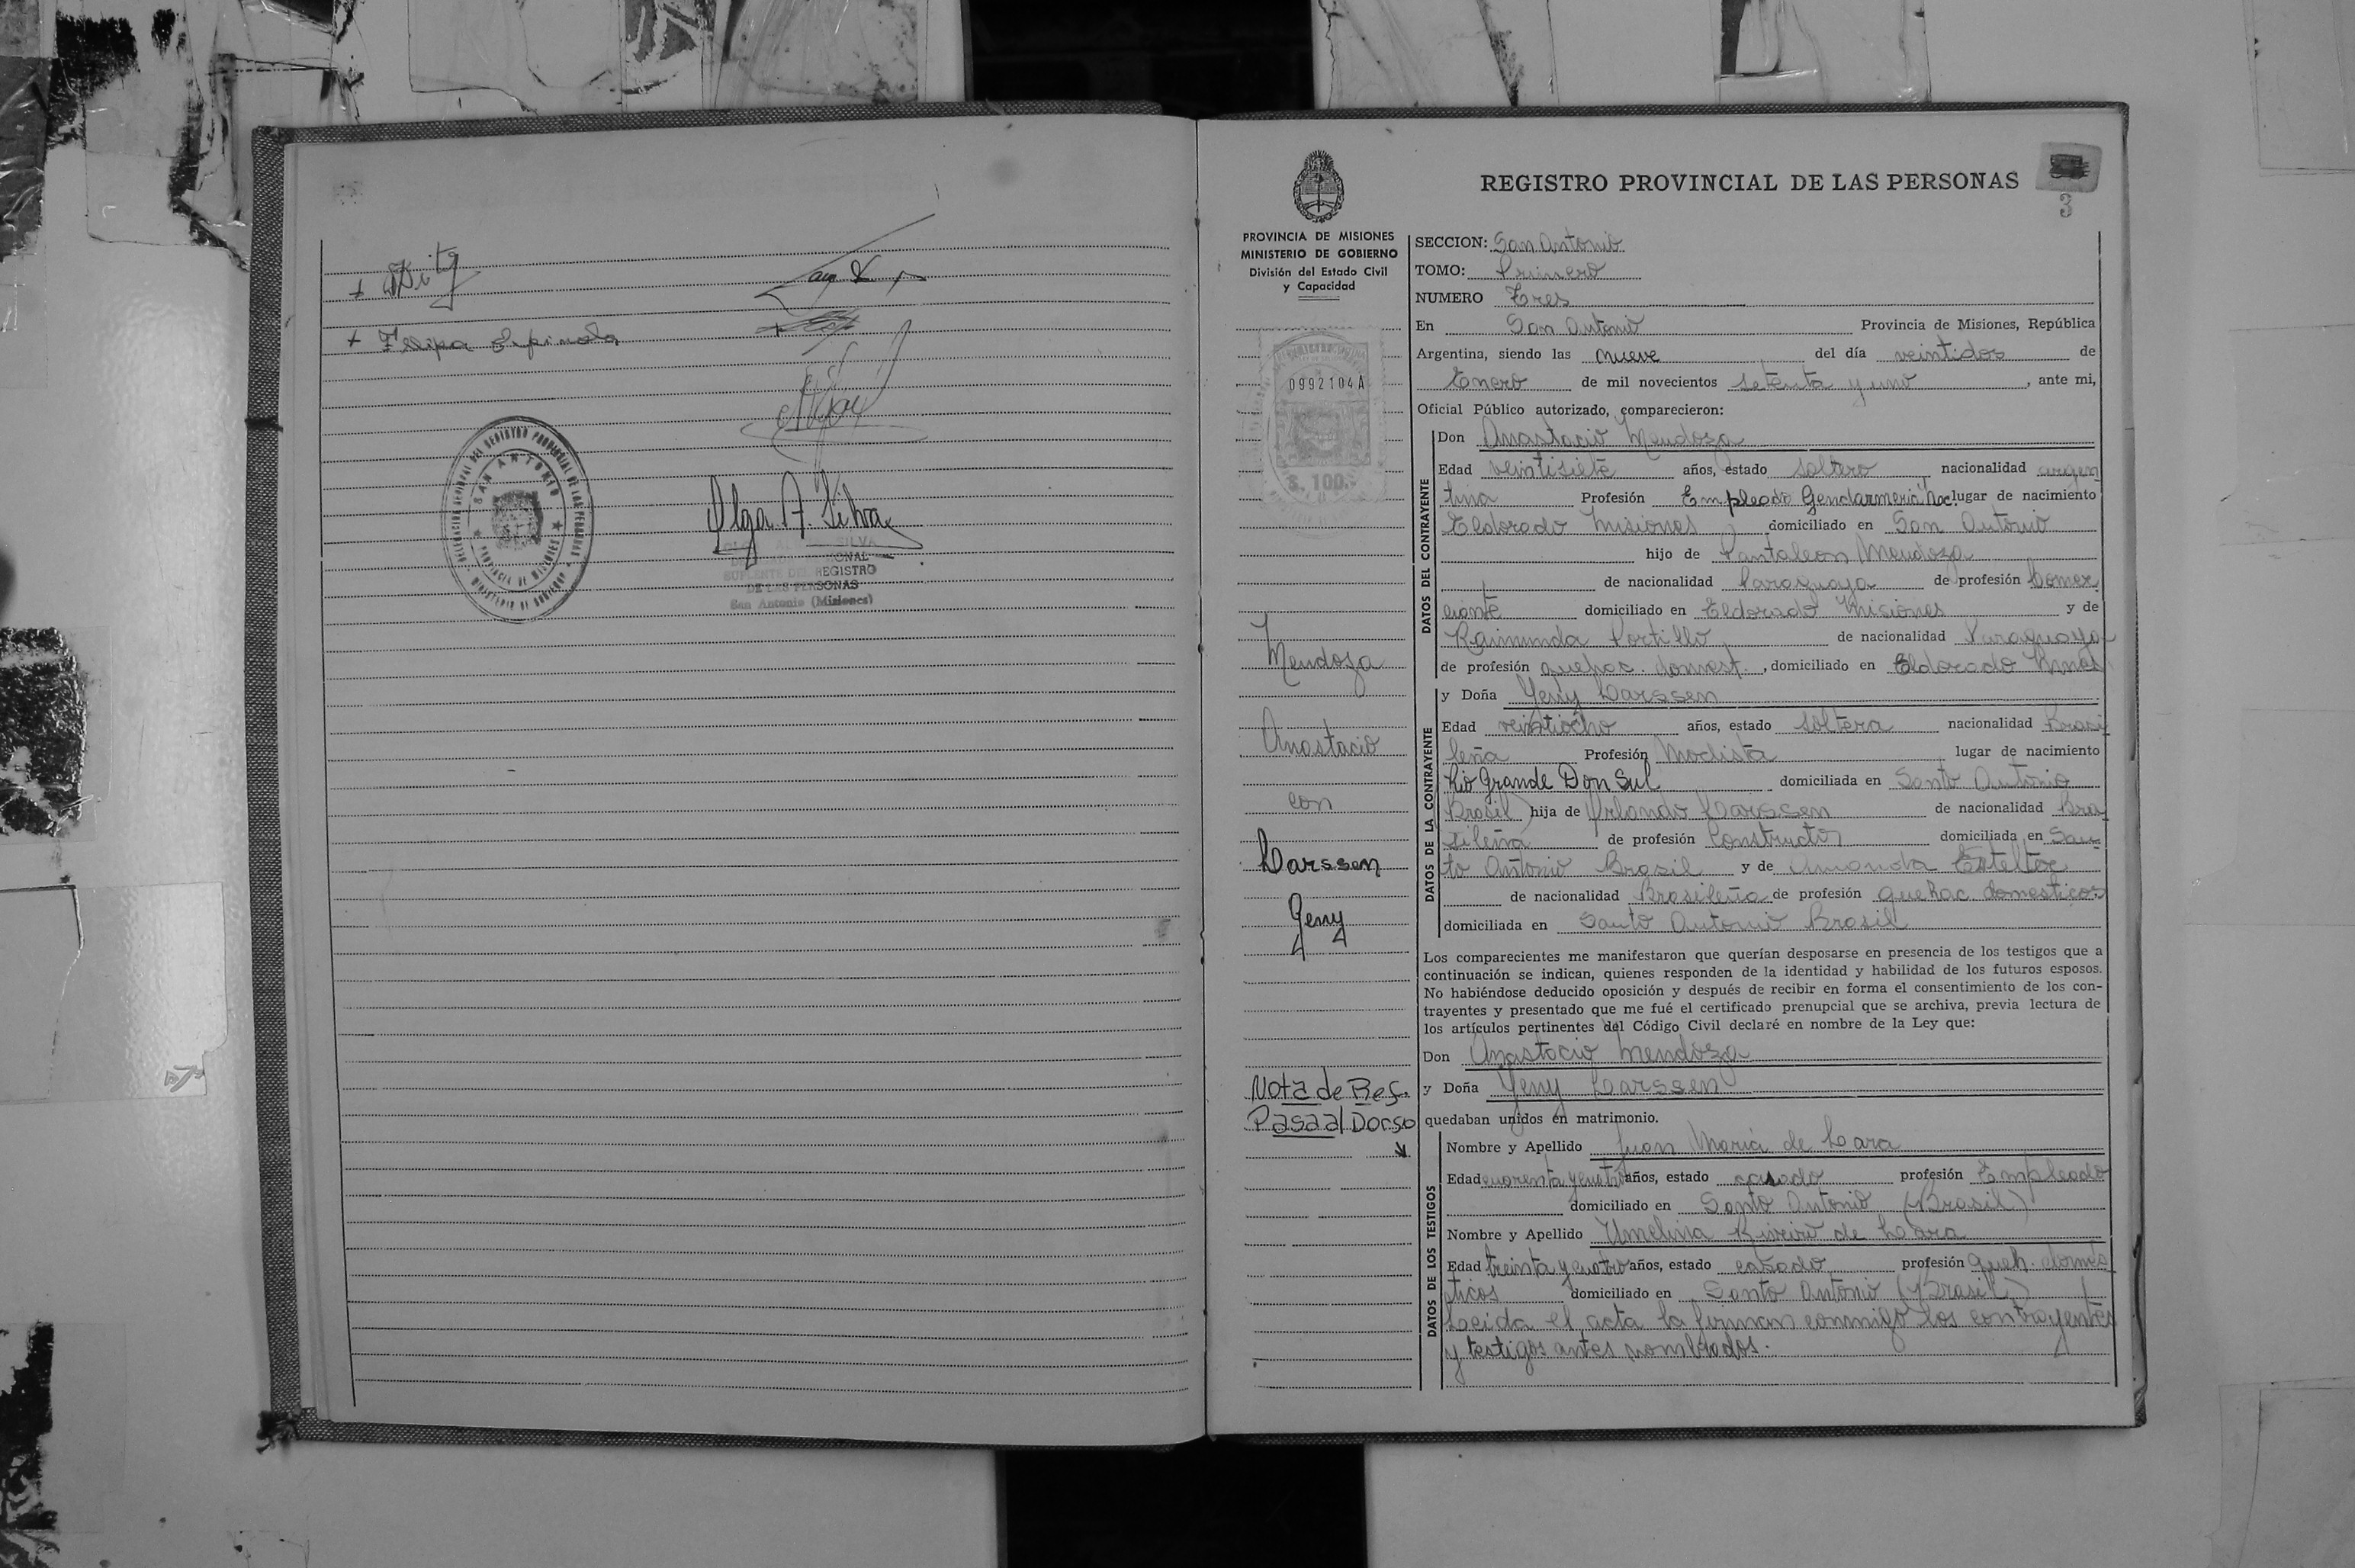 + Felipa Espinola
DELEGACION SECCIONAL DEL REGISTRO PROVINCIAL DE LAS PERSONAS
SAN ANTONIO
PROVINCIA DE MISIONES
MINISTERIO DE GOBIERNO
Olga A. Silva
SILVA
SUPLENTE DEL REGISTRO
DE LAS PERSONAS
San Antonio (Misiones)
REGISTRO PROVINCIAL DE LAS PERSONAS
3
PROVINCIA DE MISIONES
MINISTERIO DE GOBIERNO
División del Estado Civil
y Capacidad
0992104A
$. 100.-
Mendoza
Anastacio
con
Larssen
Jeny
Nota de Ref.
Pasa al Dorso
SECCION: San Antonio
TOMO: Primero
NUMERO Tres
En San Antonio Provincia de Misiones, República
Argentina, siendo las nueve del día veintidos de
Enero de mil novecientos setenta y uno, ante mi,
Oficial Público autorizado, comparecieron:
DATOS DEL CONTRAYENTE
Don Anastacio Mendoza
Edad veintisiete años, estado soltero nacionalidad argen
tina Profesión Empleado Gendarmeria Nac. lugar de nacimiento
Eldorado Misiones domiciliado en San Antonio
hijo de Pantaleon Mendoza
de nacionalidad Paraguaya de profesión Comer
ciante domiciliado en Eldorado Misiones y de
Raimunda Portillo de nacionalidad Paraguaya
de profesión quehac. domest., domiciliado en Eldorado Mnes
DATOS DE LA CONTRAYENTE
y Doña Jeny Larssen
Edad veintiocho años, estado soltera nacionalidad Brasi
leña Profesión Modista lugar de nacimiento
Rio Grande Don Sul domiciliada en Santo Antonio
Brasil) hija de Orlando Larssen de nacionalidad Bra
sileña de profesión Constructor domiciliada en San
to Antonio Brasil y de Amanda
de nacionalidad Brasileña de profesión quehac. domesticos
domiciliada en Santo Antonio Brasil
Los comparecientes me manifestaron que querían desposarse en presencia de los testigos que a
continuación se indican, quienes responden de la identidad y habilidad de los futuros esposos.
No habiéndose deducido oposición y después de recibir en forma el consentimiento de los con-
trayentes y presentado que me fué el certificado prenupcial que se archiva, previa lectura de
los artículos pertinentes del Código Civil declaré en nombre de la Ley que:
Don Anastacio Mendoza
y Doña Jeny Larssen
quedaban unidos en matrimonio.
DATOS DE LOS TESTIGOS
Nombre y Apellido Juan Maria de Lara
Edad cuarenta y cuatro años, estado casado profesión Empleado
domiciliado en Santo Antonio (Brasil)
Nombre y Apellido de Lara
Edad treinta y cuatro años, estado casado profesión queh. domes
ticos domiciliado en Santo Antonio (Brasil)
Leida el acta la firman conmigo los contrayentes
y testigos antes nombrados.